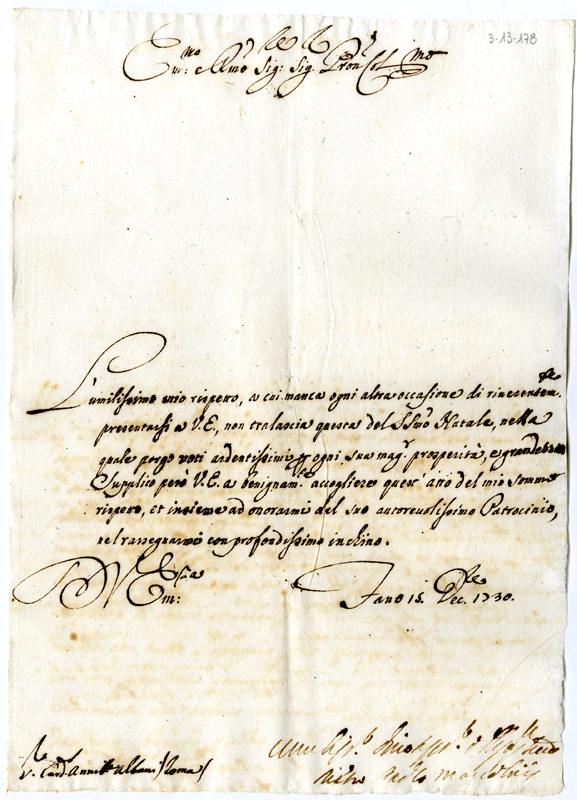 3-13-178
Em:mo Rmo Sig: Sig. Pron Col mo
L'umilissimo mio rispetto, a cui manca ogni altra occasione di riverentem.te
presentarsi a V.E., non tralascia questa del SSmo Natale, nella
quale porgo voti ardentissimi ogni sua magr. prosperità, e grandezza
Supplico però V.E. a benignam.te accogliere quest' atto del mio sommo
rispetto, et insieme ad onorarmi del suo autorevolissimo Patrocinio,
nel rassegnarmi con profondissimo inchino.
D V Em: za
Fano 15. Dec.re 1730.
S.r Card. Annib.le Albani /Roma/